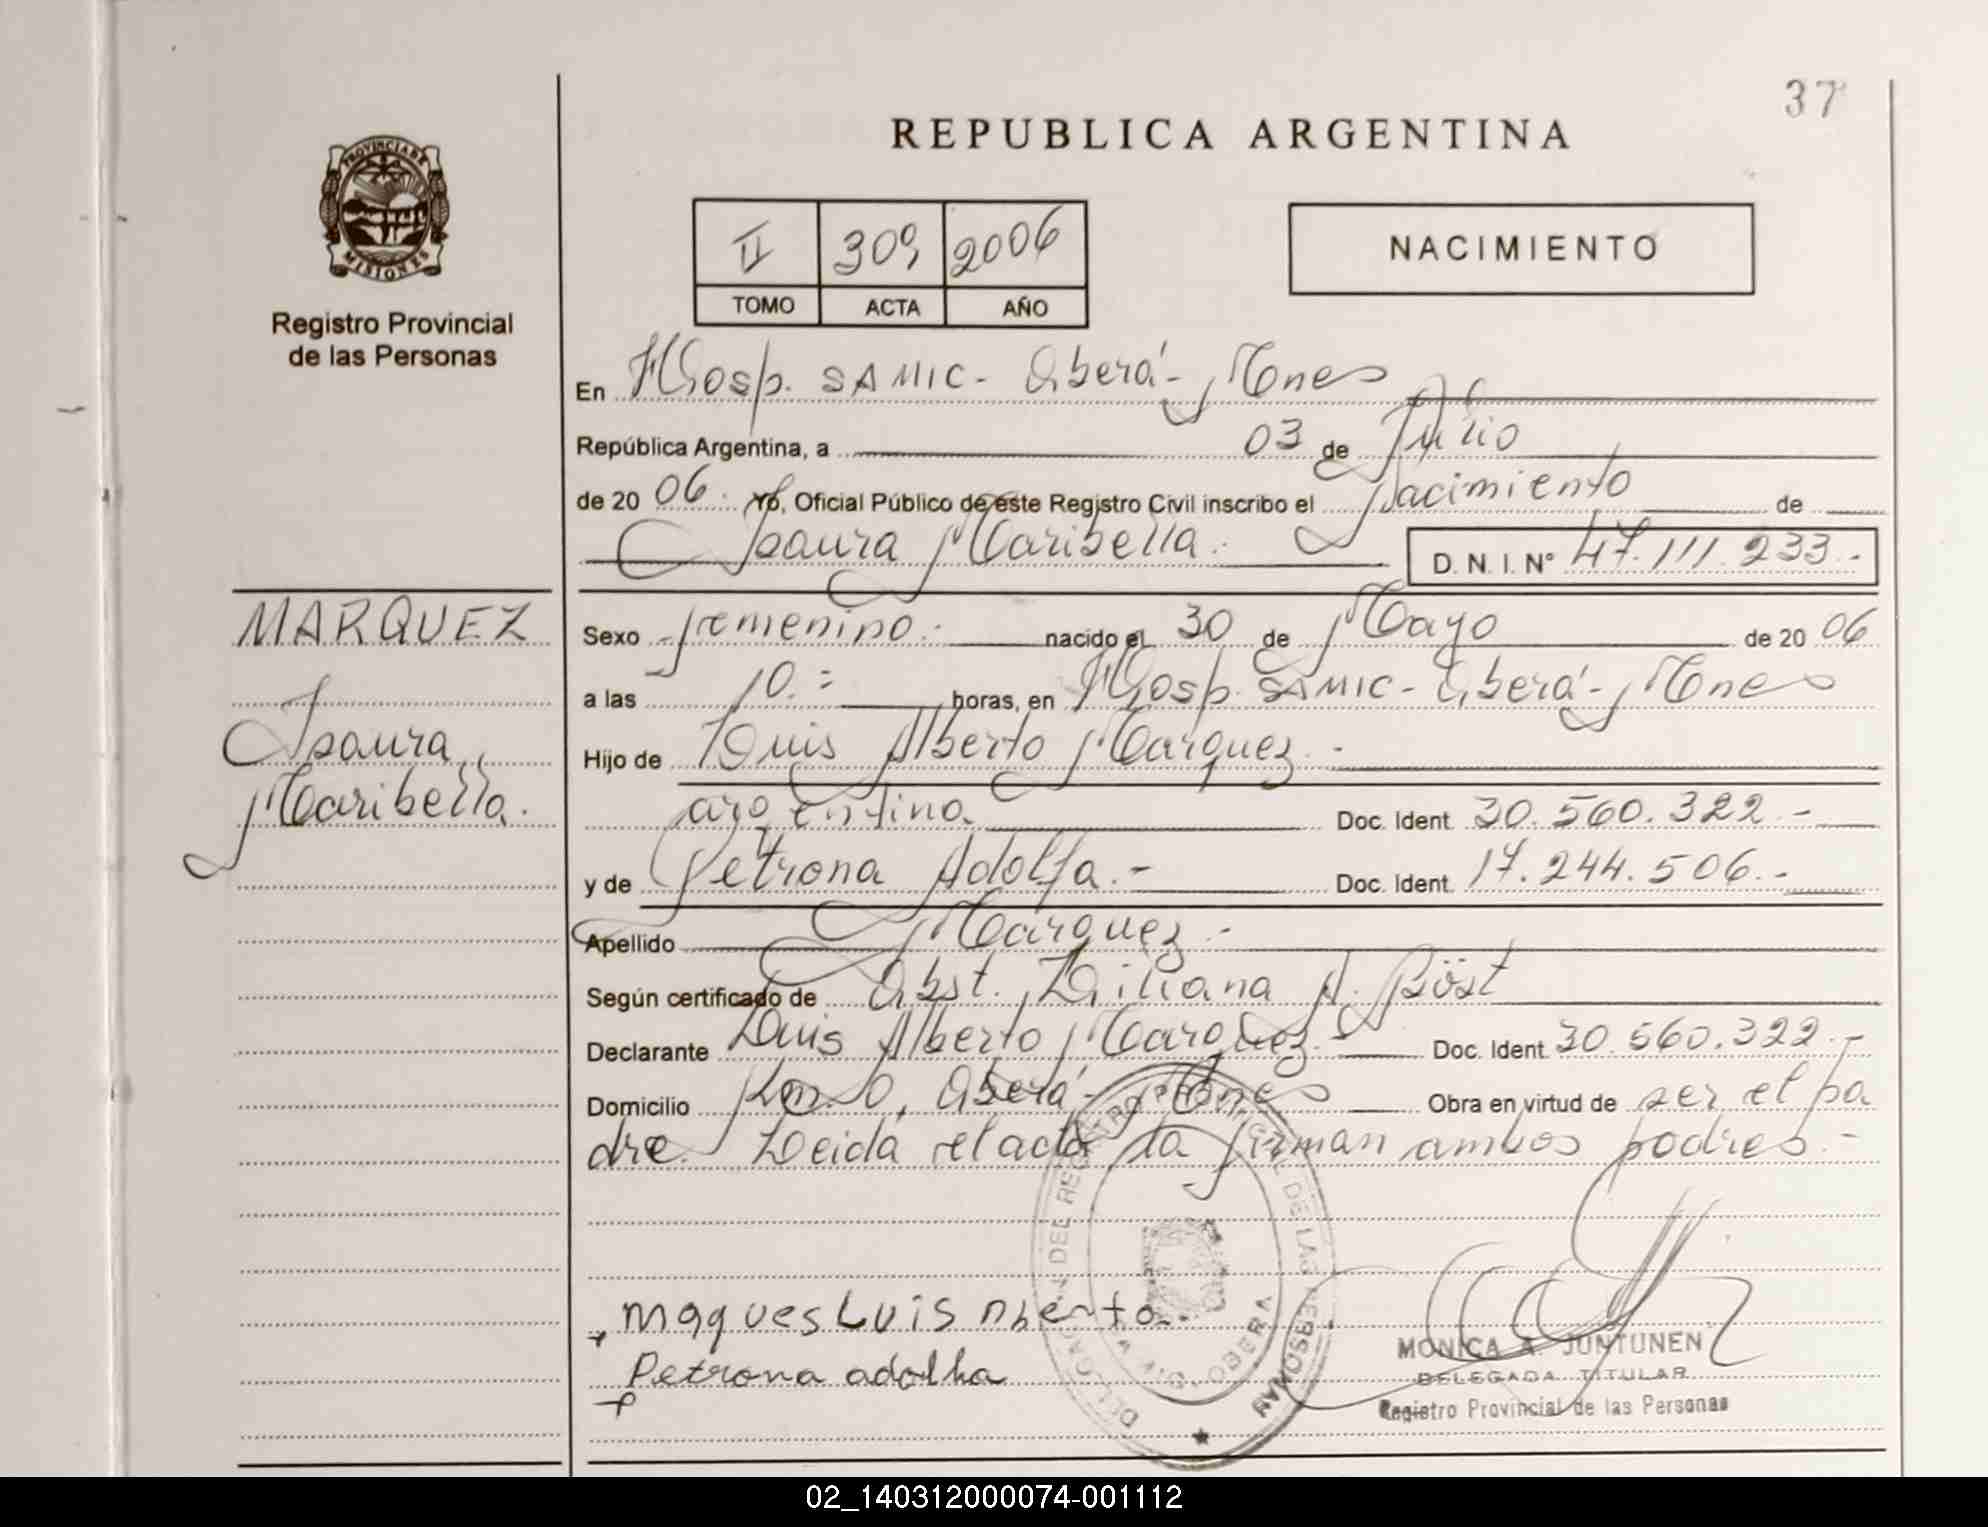 37
REPUBLICA ARGENTINA
PROVINCIA DE
MISIONES
Registro Provincial
de las Personas
II 309 2006
TOMO ACTA AÑO
NACIMIENTO
En Hosp. SAMIC - Oberá - Mnes
República Argentina, a 03 de Julio
de 20 06. Yo, Oficial Público de este Registro Civil inscribo el Nacimiento de
Isaura Maribella. D. N. I. Nº 47.111.233.-
MARQUEZ
Isaura
Maribella.
Sexo femenino. nacido el 30 de Mayo de 20 06
a las 10.= horas, en Hosp. SAMIC - Oberá - Mnes
Hijo de Luis Alberto Marquez.-
argentino Doc. Ident. 30.560.322.-
y de Petrona Adolfa.- Doc. Ident. 17.244.506.-
Apellido Marquez.-
Según certificado de Obst. Liliana A. Böst
Declarante Luis Alberto Marquez.- Doc. Ident. 30.560.322.-
Domicilio Km. 0, Oberá - Mnes Obra en virtud de ser el pa
dre. Leida el acta la firman ambos padres.-
DELEGACION DEL REGISTRO PROVINCIAL DE LAS PERSONAS
OBERA
Maques Luis Alberto
Petrona adolha
MONICA A. JUNTUNEN
DELEGADA TITULAR
Registro Provincial de las Personas
02_140312000074-001112